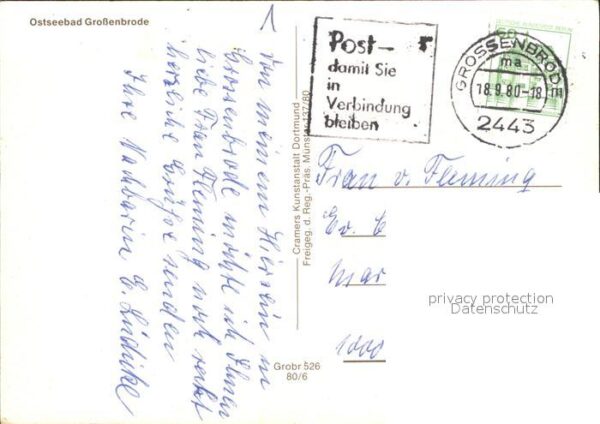 Ostseebad Großenbrode
1
Von meinem Hiersein in
Grossenbrode möchte ich Ihnen
liebe Frau Fleming noch recht
herzliche Grüße senden
Ihre Nachbarin
Cramers Kunstanstalt Dortmund
Freigeg. d. Reg.-Präs. Münster 137/80
Grobr 526
80/6
Post-
damit Sie
in
Verbindung
bleiben
GROSSENBRODE
ma
18.9.80-18
m
2443
Frau v. Fleming
1000
privacy protection
Datenschutz